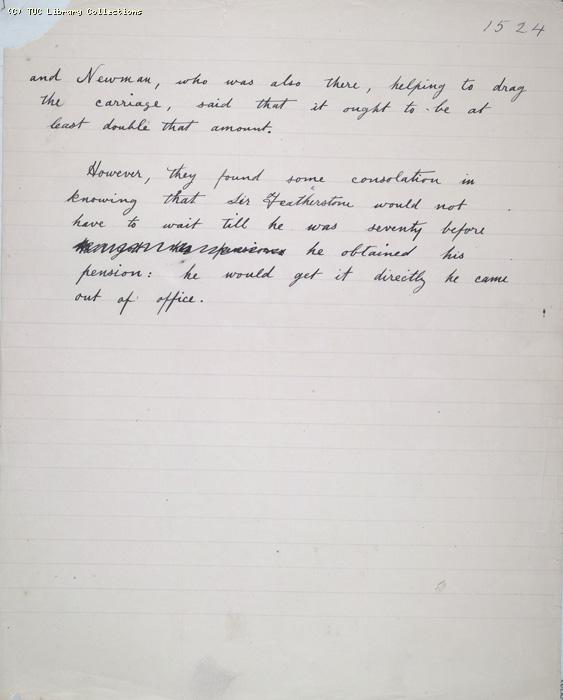 (C) TUC Library Collections
1524
and Newman, who was also there, helping to drag
the carriage, said that it ought to be at
least double that amount.
However, they found some consolation in
knowing that Sir Featherstone would not
have to wait till he was seventy before
he obtained his
pension: he would get it directly he came
out of office.